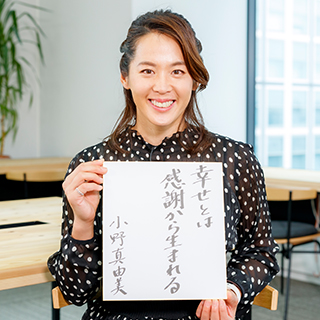 幸せとは
感謝から生まれる
小野真由美